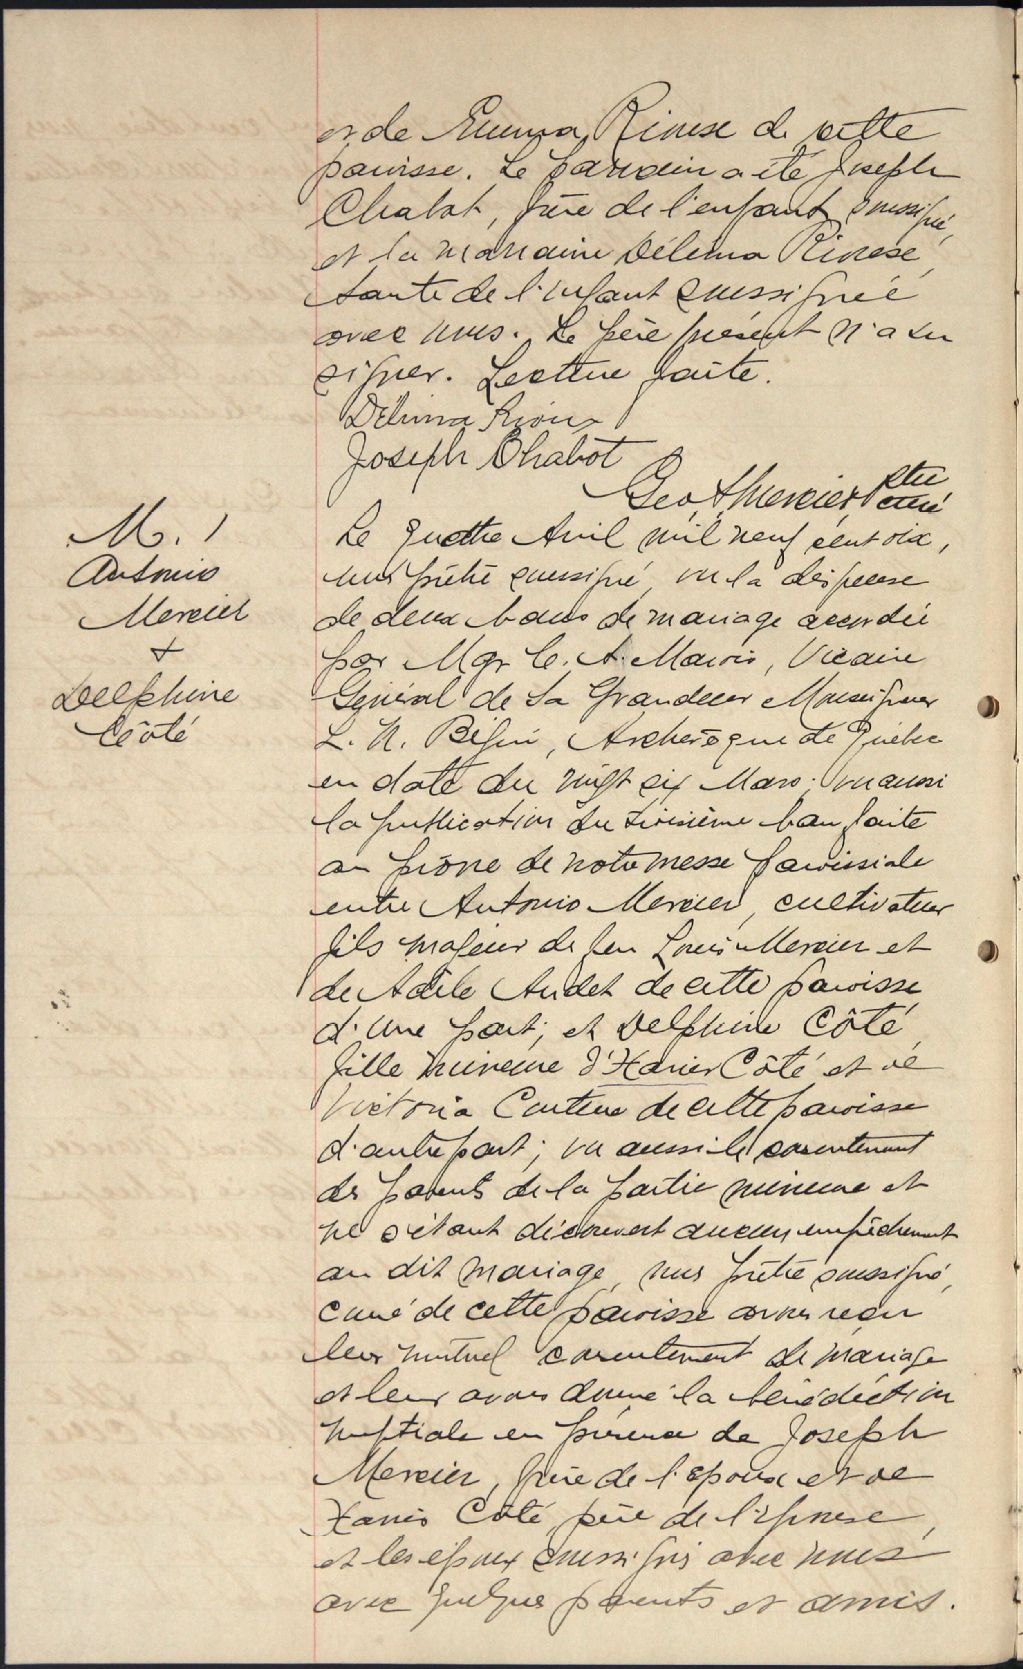 et de Emma Rioux de cette
paroisse. Le parrain a été Joseph
Chabot, frère de l'enfant soussigné,
et la marraine Délima Rioux,
tante de l'enfant soussignée
avec nous. Le père présent n'a su
signer. Lecture faite.
Délima Rioux
Joseph Chabot
Geo. Mercier Ptre
curé
M. 1
Antonio
Mercier
+
Delphine
Côté
Le quatre Avril mil neuf cent dix,
nous prêtre soussigné, vu la dispense
de deux bans de mariage accordée
par Mgr C. A. Marois, Vicaire
Général de Sa Grandeur Monseigneur
L. N. Bégin, Archevêque de Québec
en date du vingt six Mars; vu aussi
la publication du troisième ban faite
au prône de notre messe paroissiale
entre Antonio Mercier, cultivateur
fils majeur de feu Louis Mercier et
de Adèle Audet de cette paroisse
d'une part; et Delphine Côté,
fille mineure d'Xavier Côté et de
Victoria Couture de cette paroisse
d'autre part; vu aussi le consentement
des parents de la partie mineure et
ne s'étant découvert aucun empêchement
au dit mariage, nous prêtre soussigné,
curé de cette paroisse avons reçu
leur mutuel consentement de mariage
et leur avons donné la bénédiction
nuptiale en présence de Joseph
Mercier, frère de l'époux et de
Xavier Côté père de l'épouse,
et les époux soussignés avec nous
avec quelques parents et amis.